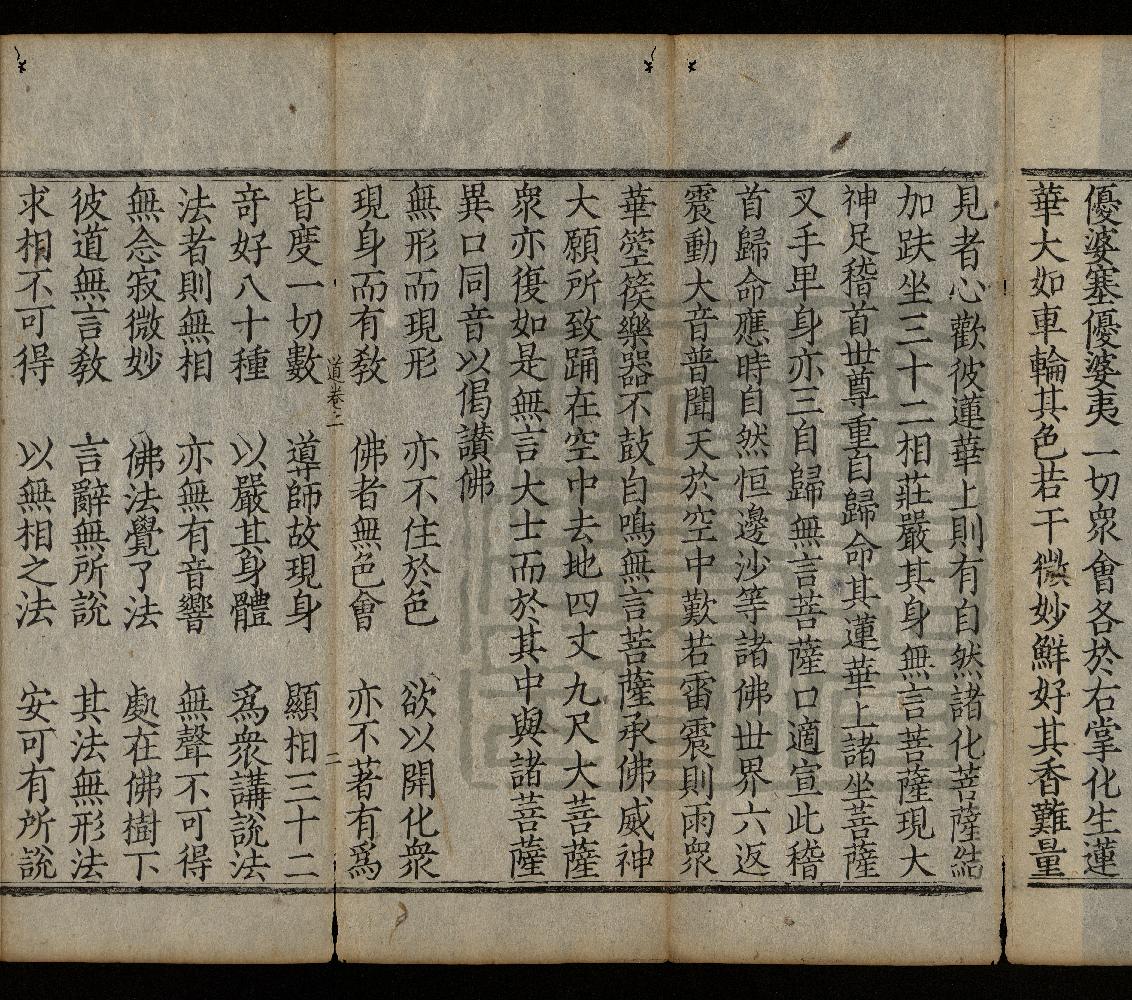 優婆塞優婆夷一切眾會各於右掌化生蓮
華大如車輪其色若干微妙鮮好其香難量
見者心歡彼蓮華上則有自然諸化菩薩結
加趺坐三十二相莊嚴其身無言菩薩現大
神足稽首世尊重自歸命其蓮華上諸坐菩薩
叉手卑身亦三自歸無言菩薩口適宣此稽
首歸命應時自然恒邊沙等諸佛世界六返
震動大音普聞天於空中歎若雷震則雨眾
華箜篌樂器不鼓自鳴無言菩薩承佛威神
大願所致踊在空中去地四丈九尺大菩薩
眾亦復如是無言大士而於其中與諸菩薩
異口同音以偈讚佛
無形而現形　亦不住於色　欲以開化眾
現身而有教　佛者無色會　亦不著有為
道卷上　二
皆度一切數　導師故現身　顯相三十二
奇好八十種　以嚴其身體　為眾講說法
法者則無相　亦無有音響　無聲不可得
無念寂微妙　佛法覺了法　處在佛樹下
彼道無言教　言辭無所說　其法無形法
求相不可得　以無相之法　安可有所說